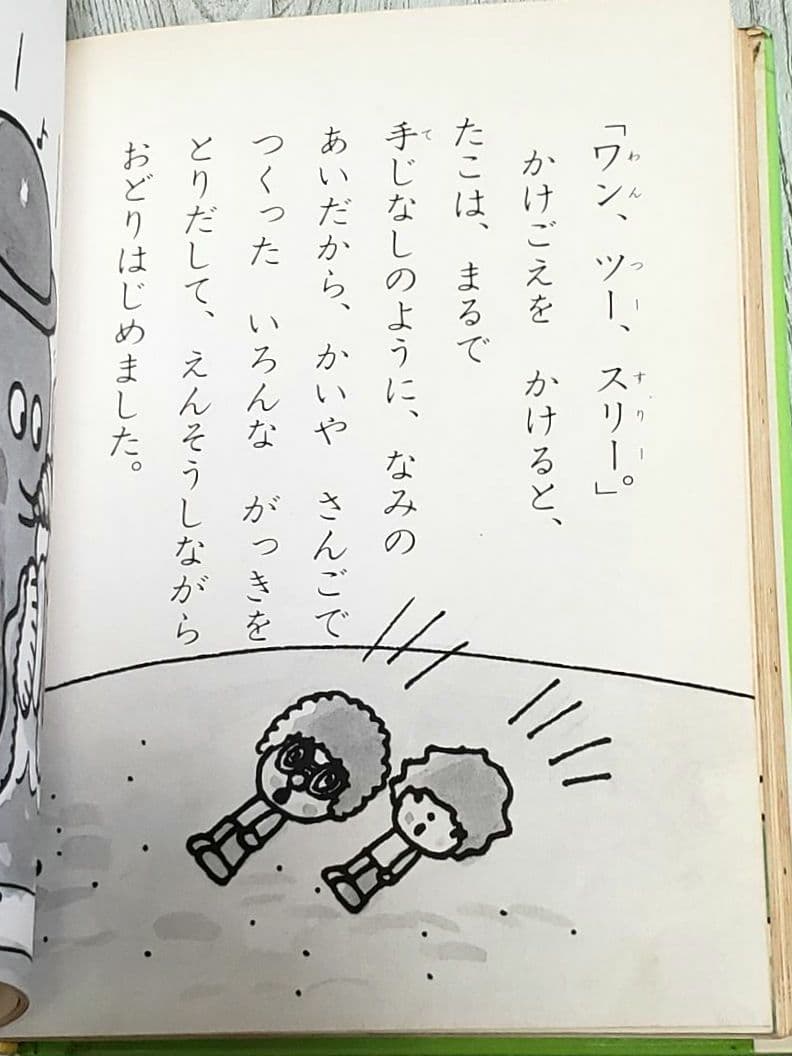 「ワン、ツー、スリー。」
かけごえを　かけると、
たこは、まるで
手じなしのように、なみの
あいだから、かいや　さんごで
つくった　いろんな　がっきを
とりだして、えんそうしながら
おどりはじめました。